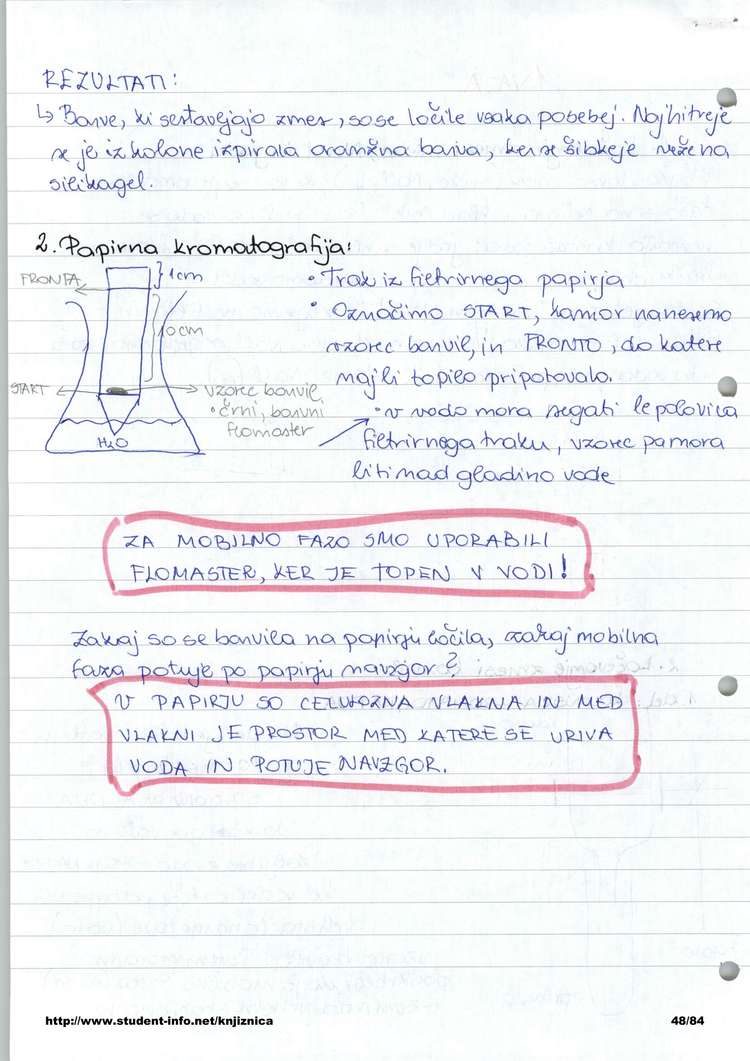 REZULTATI:
↳ Barve, ki sestavljajo zmes, so se ločile vsaka posebej. Najhitreje
se je iz kolone izpirala oranžna barva, ker se šibkeje veže na
silikagel.
2. Papirna kromatografija:
FRONTA
1cm
10cm
START
H₂O
vzorec barvil,
• črni, barvni
flomaster
• Trak iz filtrirnega papirja
• Označimo START, kamor nanesemo
vzorec barvil, in FRONTO, do katere
naj bi topilo pripotovalo.
• v vodo mora segati le polovica
filtrirnega traku, vzorec pa mora
biti nad gladino vode
ZA MOBILNO FAZO SMO UPORABILI
FLOMASTER, KER JE TOPEN V VODI!
Zakaj so se barvila na papirju ločila, zakaj mobilna
faza potuje po papirju navzgor?
V PAPIRJU SO CELULOZNA VLAKNA IN MED
VLAKNI JE PROSTOR MED KATERE SE URIVA
VODA IN POTUJE NAVZGOR.
http://www.student-info.net/knjiznica
48/84